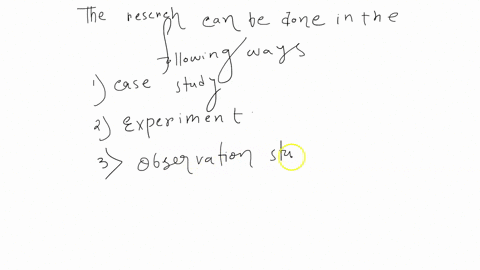 The reserch can be done in the
following ways
1) case study
2) Experiment
3) observation stu